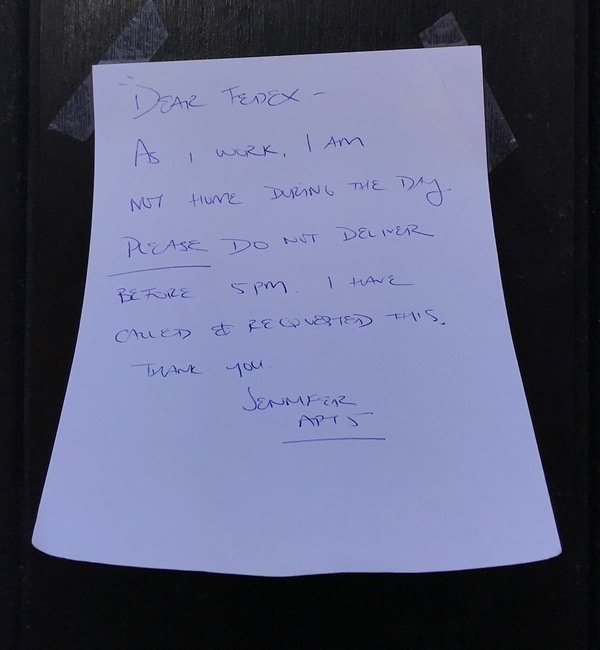 DEAR FEDEX -
AS I WORK, I AM
NOT HOME DURING THE DAY.
PLEASE DO NOT DELIVER
BEFORE 5PM. I HAVE
CALLED & REQUESTED THIS.
THANK YOU.
JENNIFER
APT 5